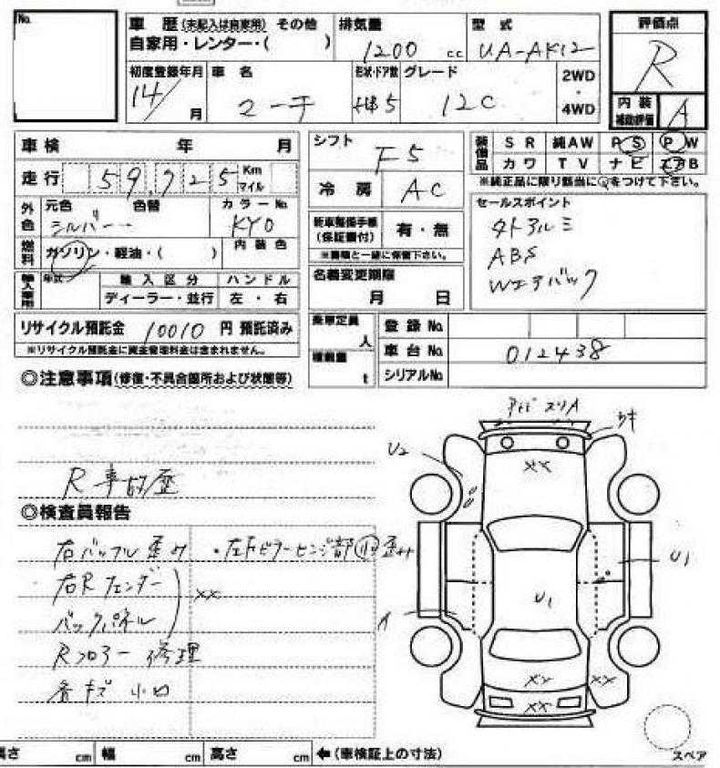 No.
車歴 (未記入は自家用) その他
自家用・レンター・( )
排気量
1200 cc
型式
UA-AK12
評価点
R
初度登録年月
14/ 月
車名
マーチ
形状・ドア数
HB 5
グレード
12C
2WD
4WD
内装
補助評価
A
車検 年 月
走行 59,725 Km
マイル
外色
元色 色替 カラーNo.
シルバー KY0
燃料
ガソリン・軽油・( )
内装色
輸入車用
年式
輸入区分
ハンドル
ディーラー・並行
左・右
リサイクル預託金 10010 円 預託済み
※リサイクル預託金に資金管理料金は含まれません。
シフト
F5
冷房
AC
新車整備手帳
(保証書付)
有・無
※書類と一緒に保管下さい。
名義変更期限
月 日
装備品
SR 純AW PS PW
カワ TV ナビ エアB
※純正品に限り該当に○をつけて下さい。
セールスポイント
タトアルミ
ABS
Wエアバック
乗車定員
人
積載量
t
登録No.
車台No.
012438
シリアルNo.
◎注意事項 (修復・不具合箇所および状態等)
R事故歴
◎検査員報告
右バッフル歪み
・左Fピラーヒンジ部 歪み
右Rフェンダー
バックパネル
XX
Rフロアー修理
各キズ小凹
スリA
ウキ
U2
XX
U1
U1
イ
XX
XX
XX
スペア
長さ cm 幅 cm 高さ cm
←(車検証上の寸法)